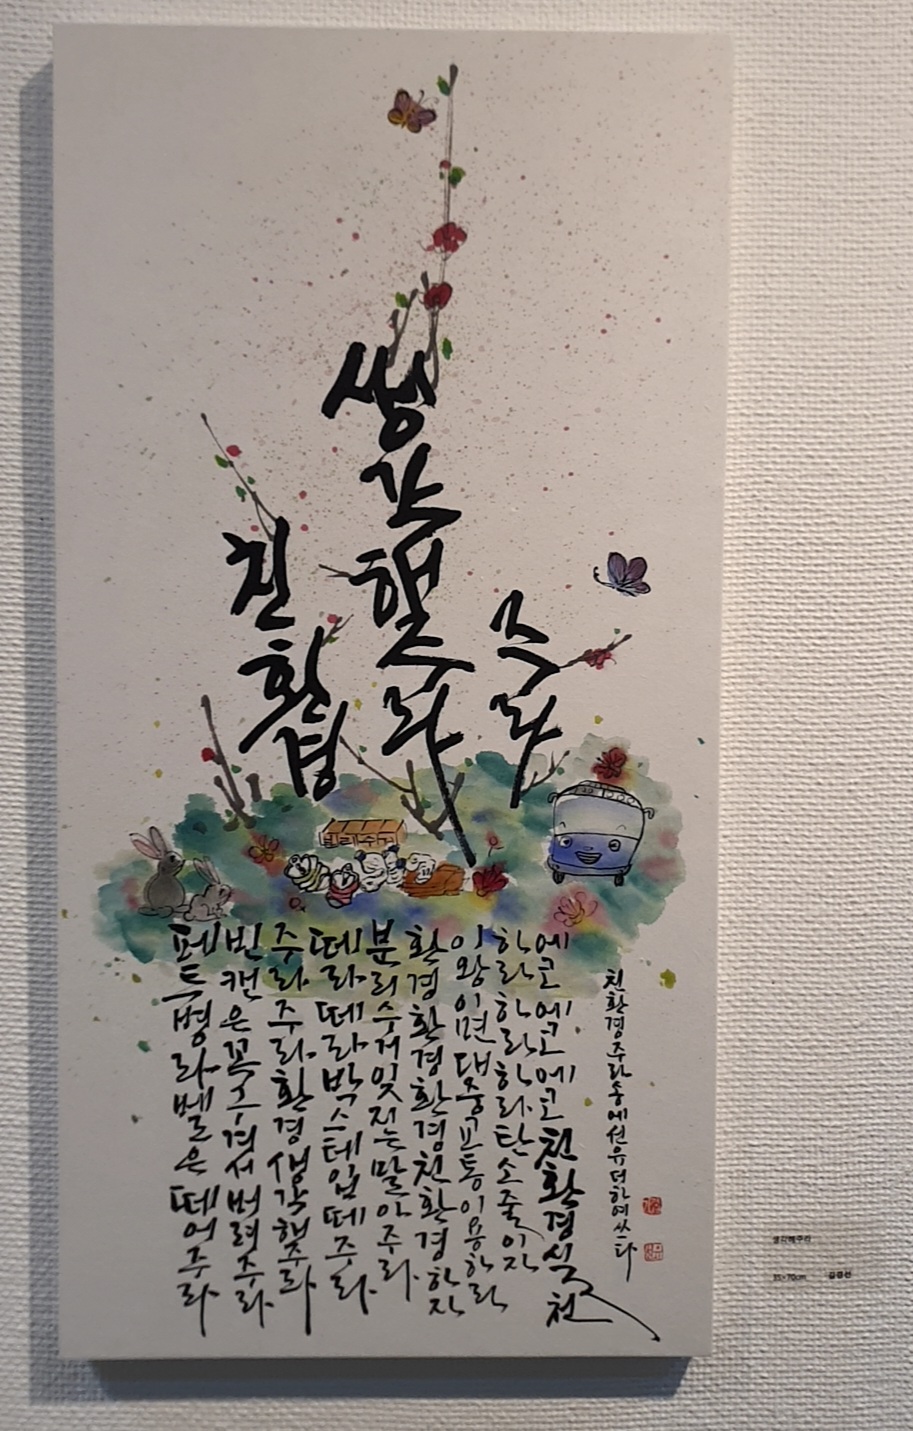 친환경
생각햇주라
주라
분리수거
에코에코에코친환경실천
하라하라하라탄소줄이자
이왕이면대중교통이용하라
환경환경환경친환경하자
분리수거잊지는말아주라
떼라떼라박스테입떼주라
주라주라환경생각햇주라
빈캔은꼭구겨서버려주라
페트병라벨은떼어주라
친환경주라송에선유더하여쓰다
생각해주라
35×70cm